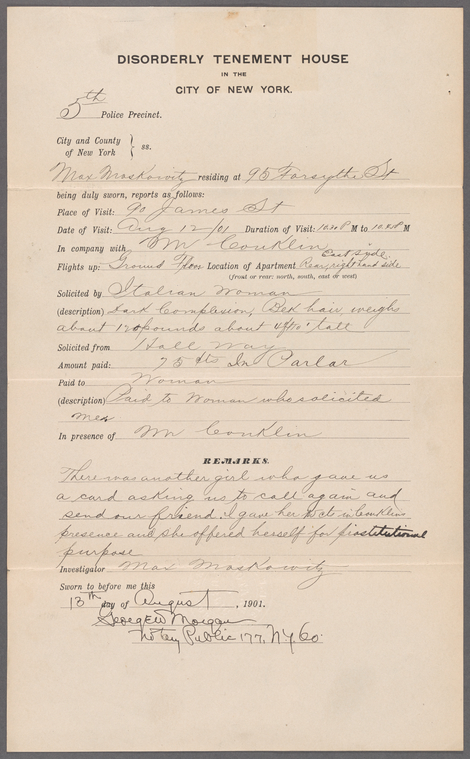 DISORDERLY TENEMENT HOUSE
IN THE
CITY OF NEW YORK.
5th Police Precinct.
City and County
of New York } ss.
Max Moskowitz residing at 95 Forsythe St
being duly sworn, reports as follows:
Place of Visit: 90 James St
Date of Visit: Aug 12/01 Duration of Visit: M to M
In company with Wm Conklin
East side
Flights up: Ground Floor Location of Apartment Rear, right hand side
(front or rear: north, south, east or west)
Solicited by Italian Woman
(description) Dark Complexion, Blk hair, weighs
about 120 pounds about 4ft10" tall
Solicited from Hall Way
Amount paid: 75 cts In Parlor
Paid to Woman
(description) Paid to Woman who solicited
me
In presence of Wm Conklin
REMARKS.
There was another girl who gave us
a card asking us to call again and
send our friend. I gave her in Conklins
presence and she offered herself for
purpose
Investigator Max Moskowitz
Sworn to before me this
13th day of August, 1901.
George W Morgan
Notary Public 177, N.Y. Co.